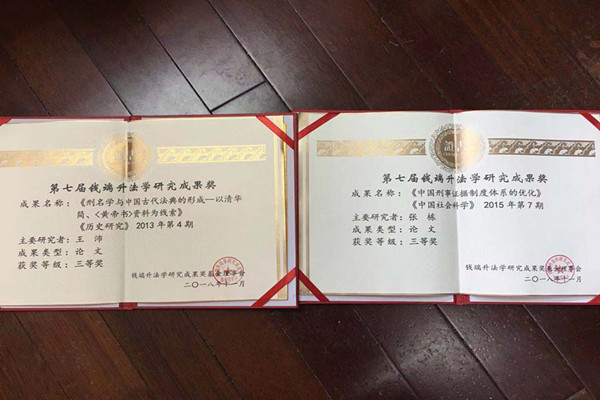 第七届钱端升法学研究成果奖
成果名称：《刑名学与中国古代法典的形成—以清华
简、《黄帝书》资料为线索》
《历史研究》2013年第4期
主要研究者：王沛
成果类型：论文
获奖等级：三等奖
钱端升法学研究成果奖基金理事会
二〇一八年十一月
第七届钱端升法学研究成果奖
成果名称：《中国刑事证据制度体系的优化》
《中国社会科学》2015年第7期
主要研究者：张栋
成果类型：论文
获奖等级：三等奖
钱端升法学研究成果奖基金理事会
二〇一八年十一月